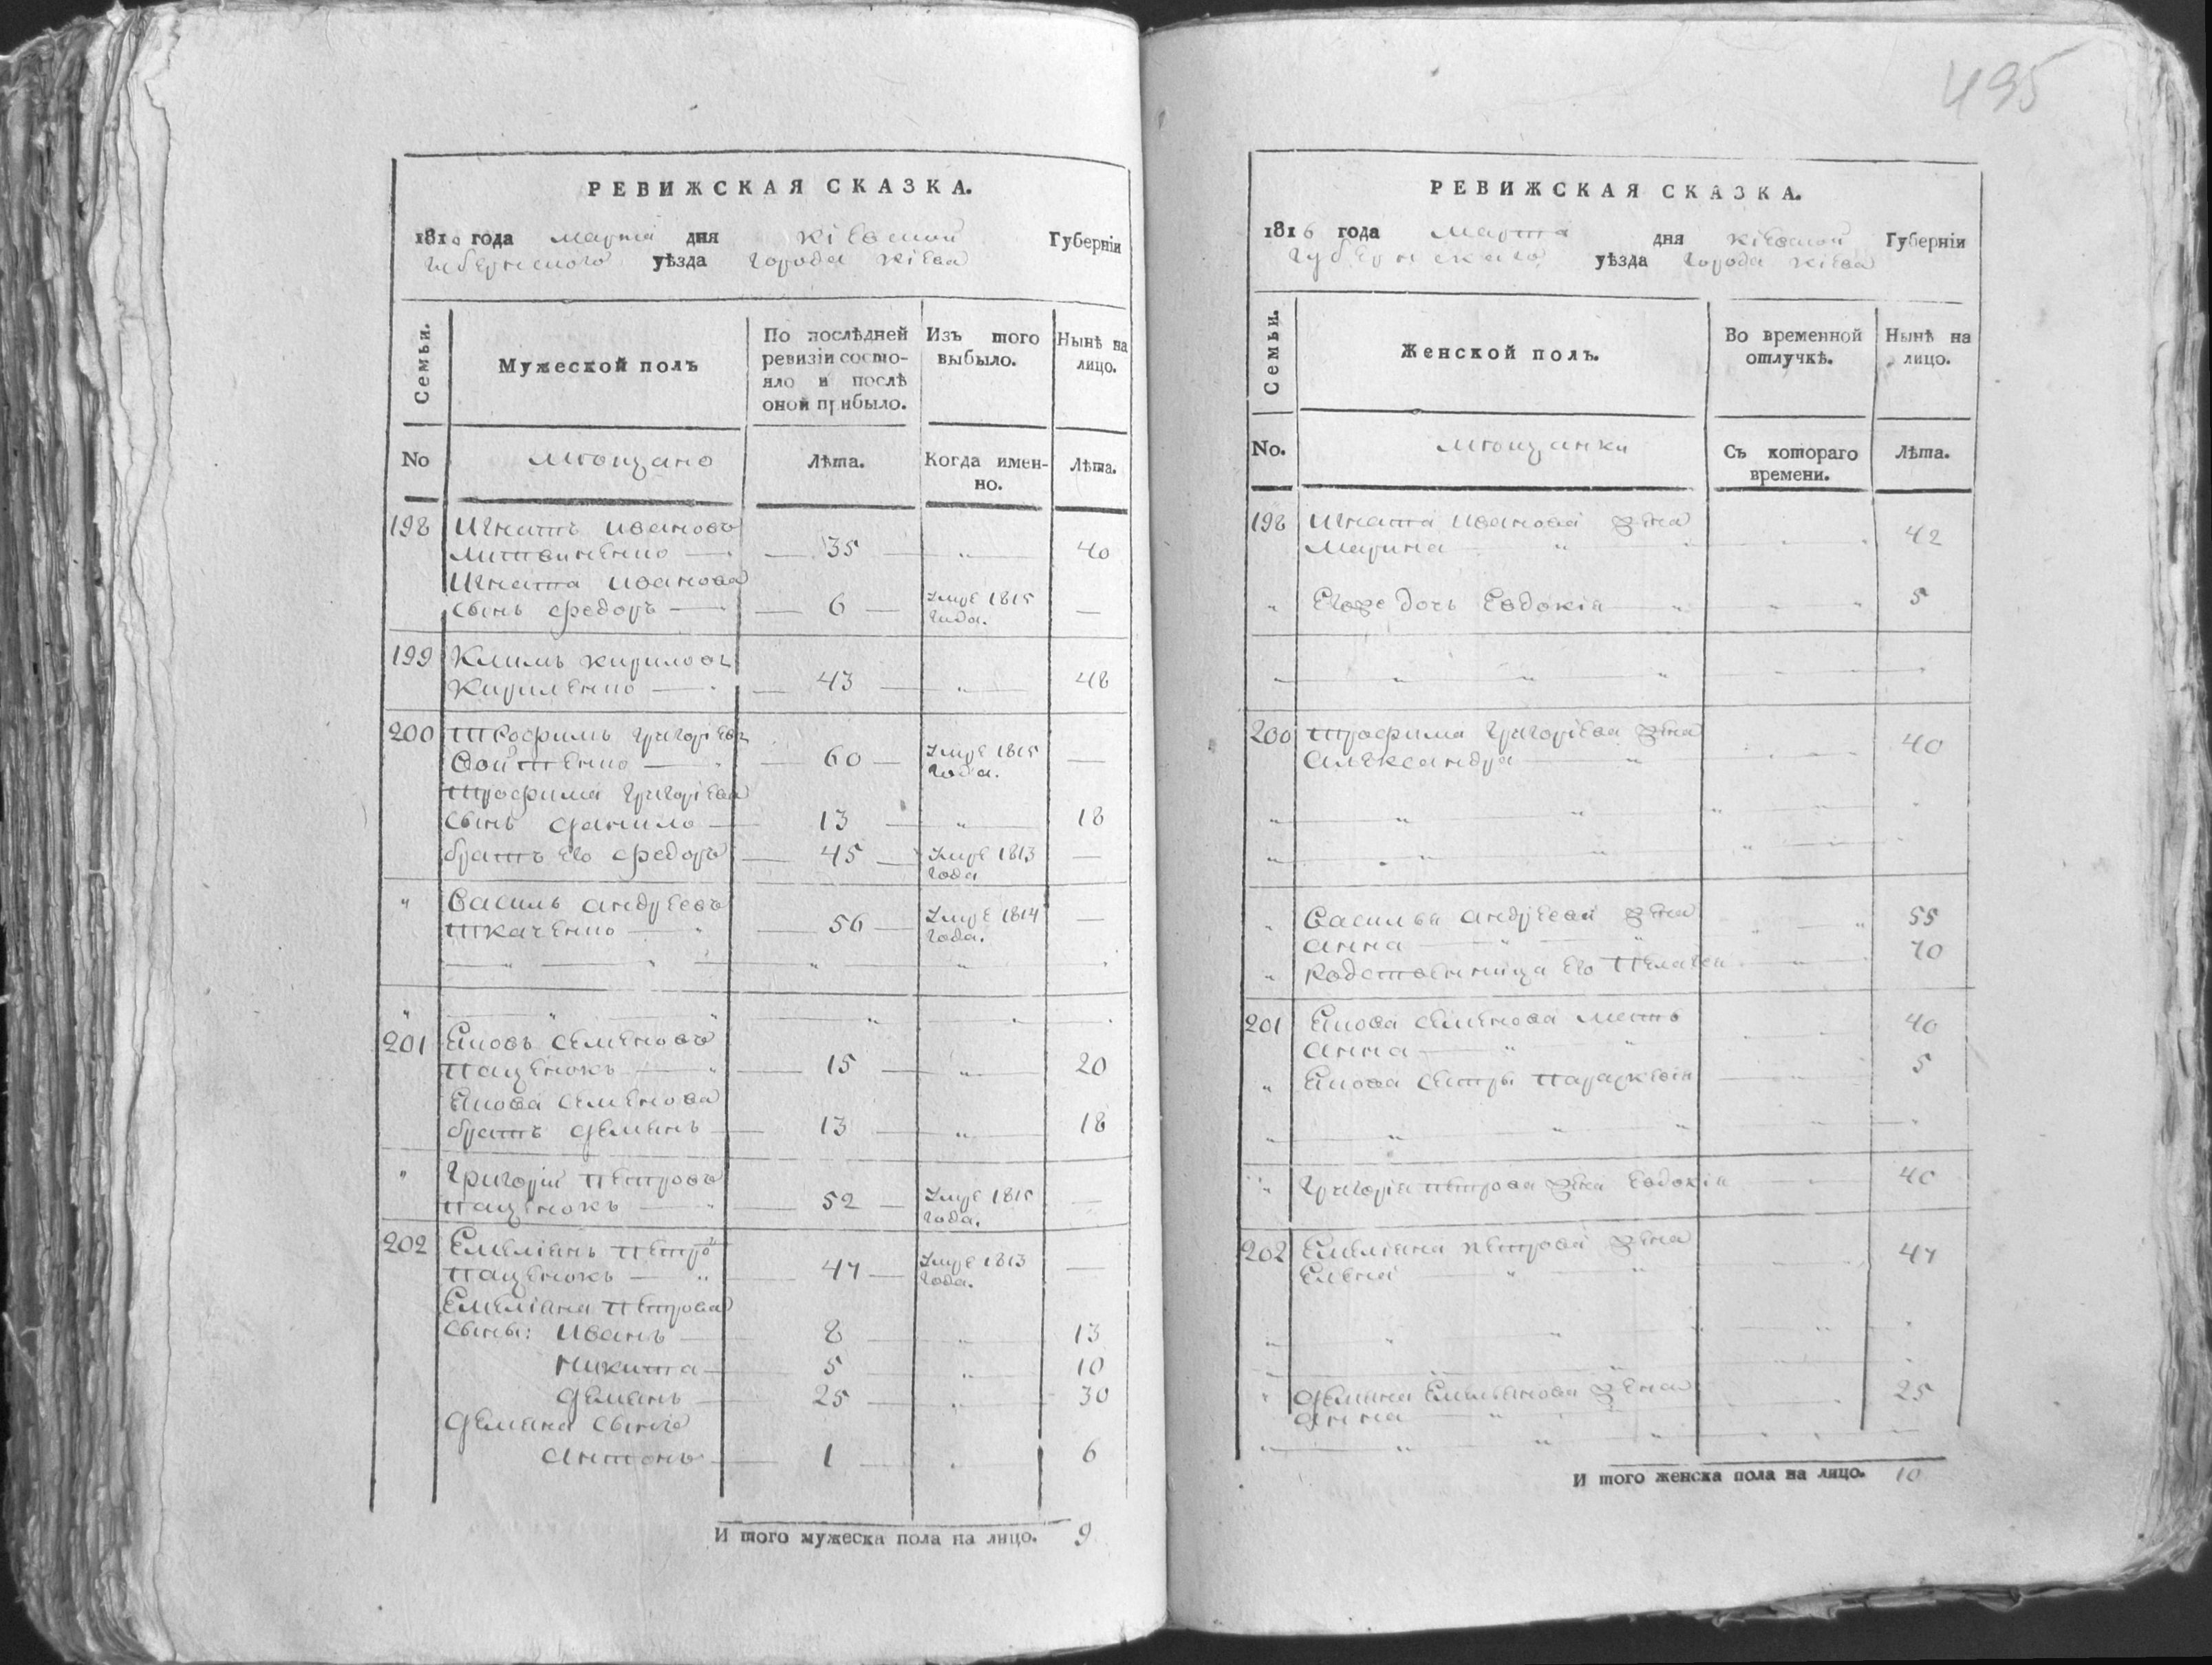 495
РЕВИЖСКАЯ СКАЗКА.
1816 года марта дня Кіевской Губерніи
Губернского уѣзда города Кіева
Семьи.
Мужеской полъ
По послѣдней ревизіи состо-
яло и послѣ
оной прибыло.
Изъ того
выбыло.
Нынѣ на
лицо.
No
мѣщане
Лѣта.
Когда имен-
но.
Лѣта.
198 Игнатъ Ивановъ
Литвиненко — 35 — " 40
Игната Иванова
сынъ Федоръ — 6 — Умре 1815
года. —
199 Климъ Кириловъ
Кириленко — 43 — " 48
200 Трофимъ Григоріевъ
Войтенко — 60 — Умре 1815
года. —
Трофима Григоріева
сынъ Данило — 13 — " 18
братъ его Федоръ — 45 — Умре 1813
года —
" Василь Андреевъ
Ткаченко — 56 — Умре 1814
года. —
201 Яковъ Семеновъ
Паценокъ — 15 — " 20
Якова Семенова
братъ Демянъ — 13 — " 18
" Григорій Петровъ
Паценокъ — 52 — Умре 1815
года. —
202 Емеліянъ Петро"
Паценокъ — 47 — Умре 1813
года. —
Емеліяна Петрова
сыны: Иванъ — 8 — " 13
Никита — 5 " 10
Демянъ — 25 — " 30
Демяна сынъ
Антонъ — 1 — " 6
И того мужеска пола на лицо. 9
РЕВИЖСКАЯ СКАЗКА.
1816 года марта дня Кіевской Губерніи
Губернскаго уѣзда города Кіева
Семьи.
Женской полъ.
Во временной
отлучкѣ.
Нынѣ на
лицо.
No.
мѣщанки
Съ котораго
времени.
Лѣта.
198 Игната Иванова жена
Марина — " 42
" Егоже дочь Евдокія — " 5
200 Трофима Григоріева жена
Александра — " 40
" Василья Андреева жена
Анна — " 55
" Родственница его Пелагея 70
201 Якова Семенова мать
Анна — " 40
" Якова сестры Параскевія 5
" Григорія Петрова жена Евдокія 40
202 Емеліяна Петрова жена
Елена — " 47
" Демяна Емельянова жена
Анна — " 25
И того женска пола на лицо. 10